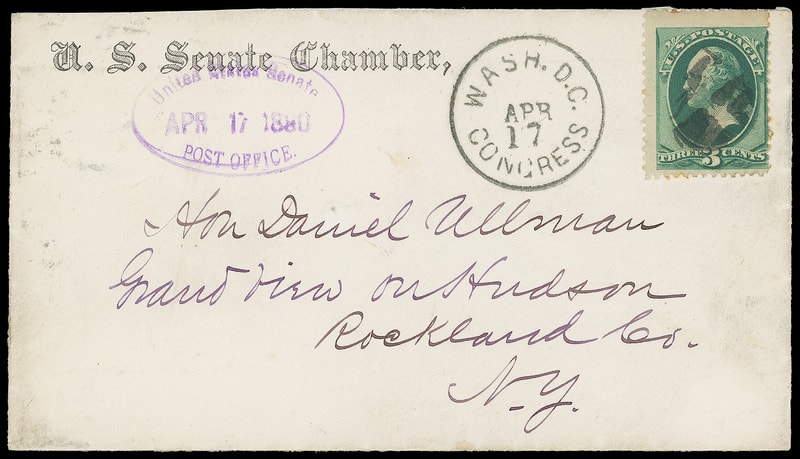 U. S. Senate Chamber,
United States Senate
APR 17 1880
POST OFFICE.
WASH. D.C.
APR
17
CONGRESS
U.S. POSTAGE
THREE 3 CENTS
Hon Daniel Ullman
Grand View on Hudson
Rockland Co.
N.Y.